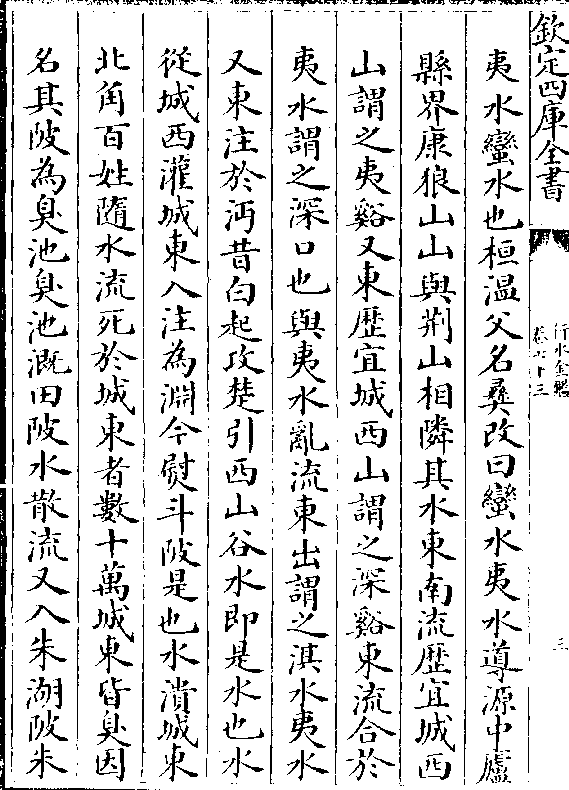 欽定四庫全書
行水金鑑
卷七十三
三
夷水蠻水也桓温父名彝改曰蠻水夷水導源中廬
縣界康狼山山與荆山相隣其水東南流歷宜城西
山謂之夷谿又東歷宜城西山謂之深谿東流合於
夷水謂之深口也與夷水亂流東出謂之淇水夷水
又東注於沔昔白起攻楚引西山谷水即是水也水
從城西灌城東入注為淵今熨斗陂是也水潰城東
北角百姓隨水流死於城東者數十萬城東皆臭因
名其陂為臭池臭池溉田陂水散流又入朱湖陂朱